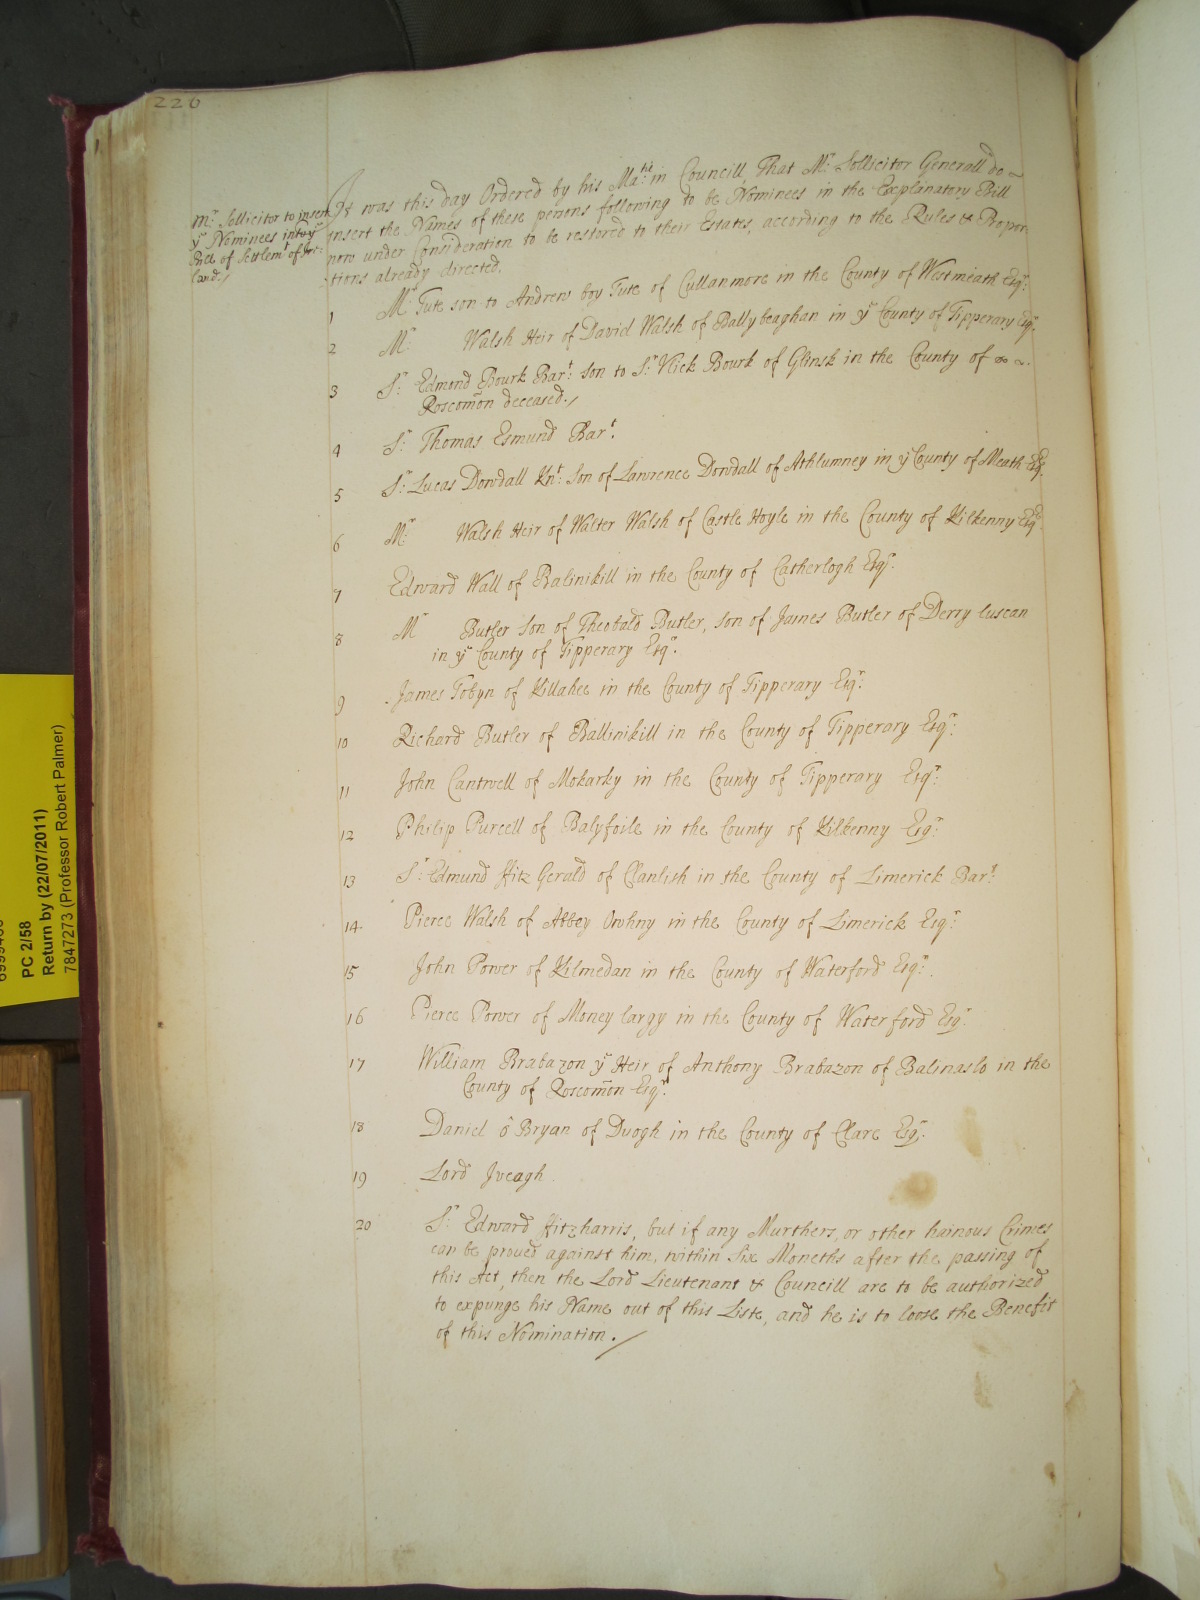 220
Mr. Sollicitor to insert
ye Nominees into ye
Bill of Settlemt of Ire-
land./
It was this day Ordered by his Matie: in Councill, That Mr. Sollicitor Generall do
insert the Names of these persons following to be Nominees in the Explanatory Bill
now under Consideration to be restored to their Estates, according to the Rules & Propor-
tions already directed.
1 Mr Tute son to Andrew boy Tute of Cullanmore in the County of Westmeath Esqr:
2 Mr: Walsh Heir of David Walsh of Ballybeaghan in ye County of Tipperary Esqr.
3 Sr: Edmond Bourk Bart: son to Sr: Vlick Bourk of Glinsk in the County of
Roscom̃on deceased./
4 Sr: Thomas Esmund Bart.
5 Sr: Lucas Dowdall Knt: Son of Lawrence Dowdall of Athlumney in ye County of Meath Esqr.
6 Mr: Walsh Heir of Walter Walsh of Castle Hoyle in the County of Kilkenny Esqr.
7 Edward Wall of Balinikill in the County of Catherlogh Esqr.
8 Mr Butler Son of Theobald Butler, son of James Butler of Derry luscan
in ye County of Tipperary Esqr.
9 James Tobyn of Killahee in the County of Tipperary Esqr.
10 Richard Butler of Ballinikill in the County of Tipperary Esqr:
11 John Cantwell of Mokarky in the County of Tipperary Esqr.
12 Philip Purcell of Balyfoile in the County of Kilkenny Esqr:
13 Sr: Edmund ffitz Gerald of Clanlish in the County of Limerick Bart:
14 Pierce Walsh of Abbey Owhny in the County of Limerick Esqr:
15 John Power of Kilmedan in the County of Waterford Esqr:.
16 Pierce Power of Money largy in the County of Waterford Esqr.
17 William Brabazon ye Heir of Anthony Brabazon of Balinaslo in the
County of Roscom̃on Esqr.
18 Daniel ô Bryan of Duogh in the County of Clare Esqr:
19 Lord Iveagh
20 Sr: Edward ffitzharris, but if any Murthers, or other hainous Crimes
can be proued against him, within Six Moneths after the passing of
this Act, then the Lord Lieutenant & Councill are to be authorized
to expunge his Name out of this Liste, and he is to loose the Benefit
of this Nomination./
PC 2/58
Return by (22/07/2011)
7847273 (Professor Robert Palmer)